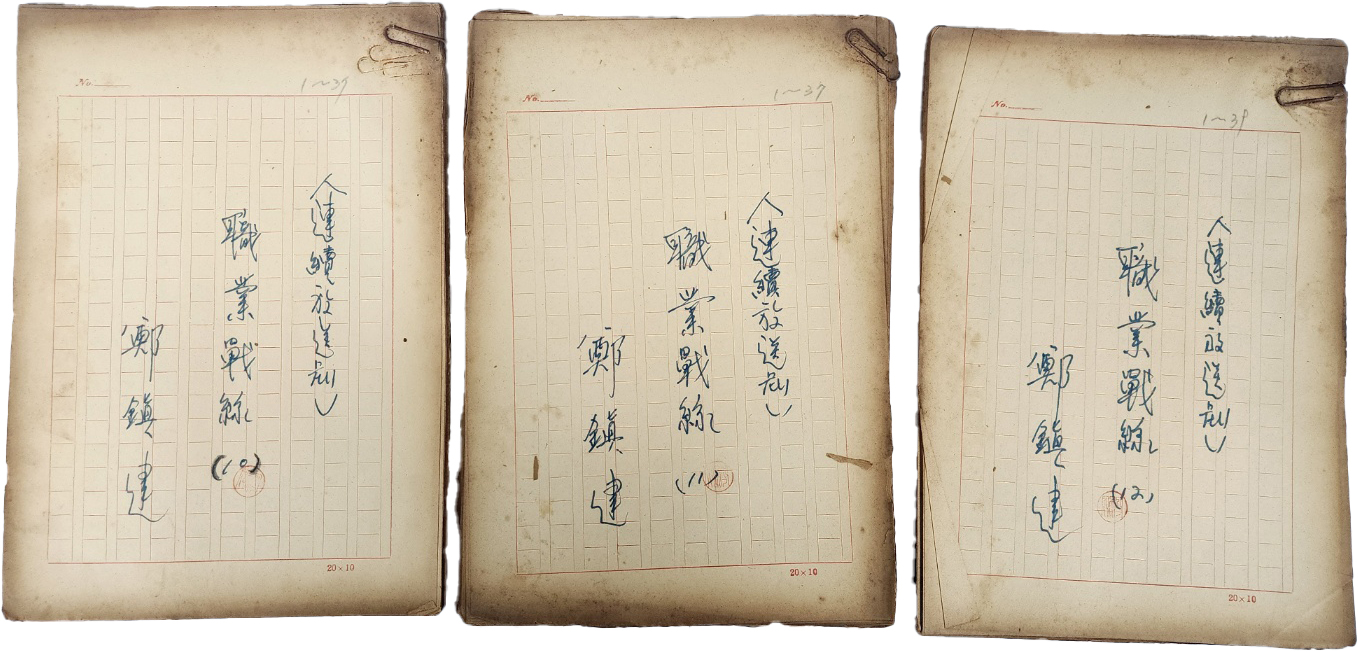 No.
1~39
〈連續放送劇〉
職業戰線
(10)
鄭鎮建
20×10
No.
1~37
〈連續放送劇〉
職業戰線
(11)
鄭鎮建
20×10
No.
〈連續放送劇〉
職業戰線
(12)
鄭鎮建
20×10